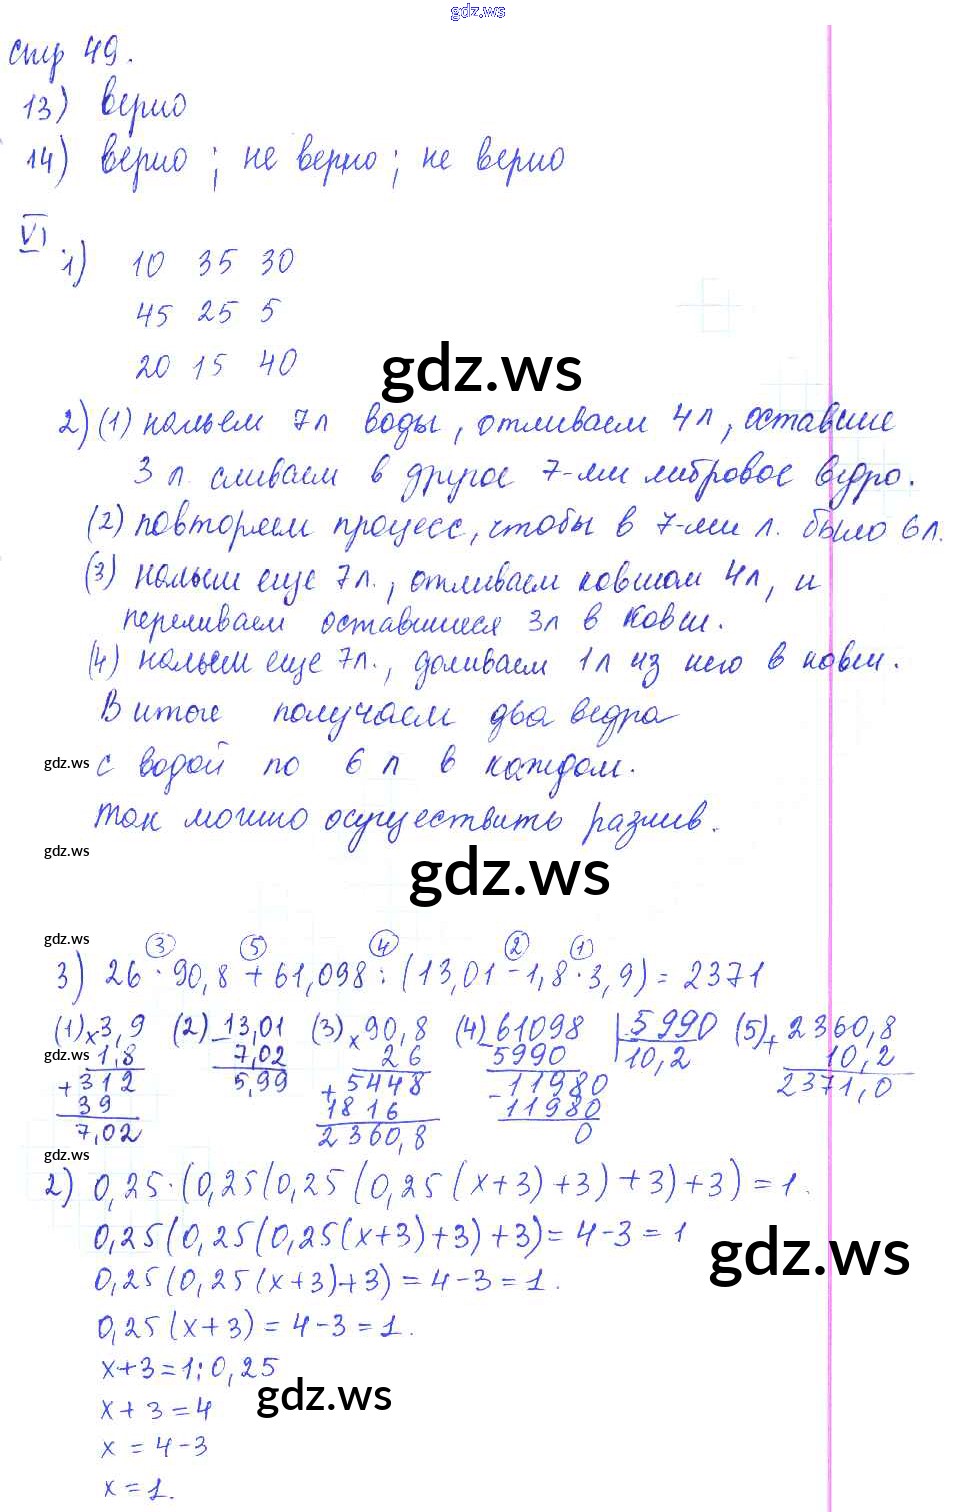 gdz.ws
стр 49.
13) верно
14) верно ; не верно ; не верно
VI
1) 10 35 30
45 25 5
20 15 40
gdz.ws
2) (1) нальем 7л воды, отливаем 4л, оставшие
3 л. сливаем в другое 7-ми литровое ведро.
(2) повторяем процесс, чтобы в 7-ми л. было 6л.
(3) нальем еще 7л., отливаем ковшом 4л, и
переливаем оставшиеся 3л в ковш.
(4) нальем еще 7л., доливаем 1л из него в ковш.
В итоге получаем два ведра
gdz.ws с водой по 6 л в каждом.
Так можно осуществить разлив.
gdz.ws
gdz.ws
gdz.ws
(3) (5) (4) (2) (1)
3) 26 · 90,8 + 61,098 : (13,01 - 1,8 · 3,9) = 2371
(1) × 3,9 (2) - 13,01 (3) × 90,8 (4) - 61098 | 5990 (5) + 2360,8
gdz.ws 1,8 7,02 26 5990 10,2 10,2
+ 312 5,99 + 5448 - 11980 2371,0
39 1816 11980
7,02 2360,8 0
gdz.ws
2) 0,25 · (0,25(0,25(0,25(x+3)+3)+3)+3) = 1.
0,25(0,25(0,25(x+3)+3)+3) = 4-3 = 1
gdz.ws
0,25(0,25(x+3)+3) = 4-3 = 1.
0,25(x+3) = 4-3 = 1.
x+3 = 1:0,25
gdz.ws
x+3 = 4
x = 4-3
x = 1.